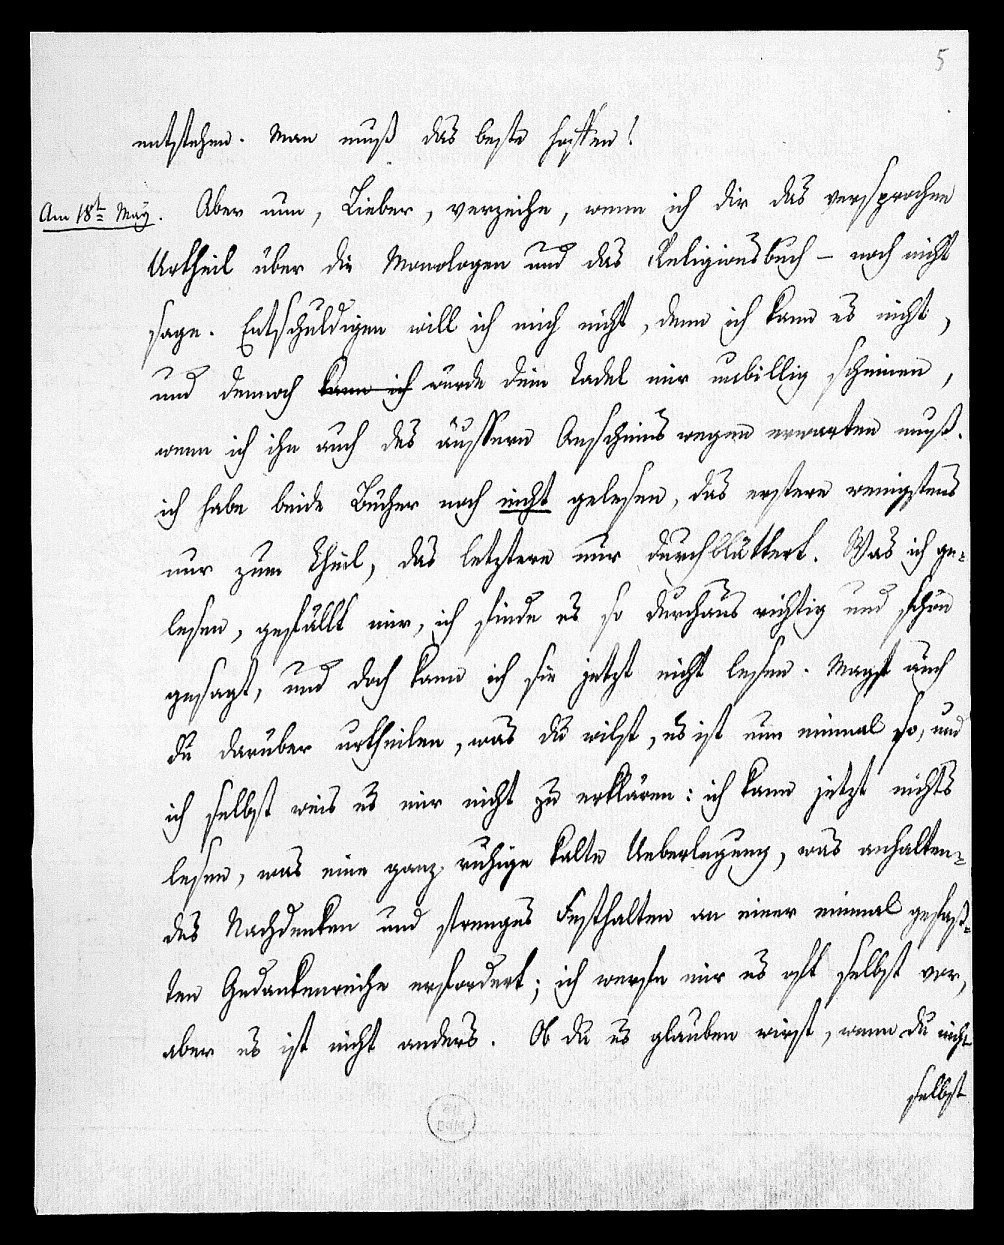 5
entstehen. Man muß das beste hoffen!
Am 18t May. Aber nun, Lieber, verzeihe, wenn ich dir das versprochne
Urtheil über die Monologen und das Religionsbuch – noch nicht
sage. Entschuldigen will ich mich nicht, denn ich kann es nicht,
und dennoch kann ich würde dein Tadel mir unbillig scheinen,
wenn ich ihn auch des äussern Anscheins wegen erwarten muß.
ich habe beide Bücher noch nicht gelesen, das erstere wenigstens
nur zum Theil, das letztere nur durchblättert. Was ich ge-
lesen, gefällt mir, ich finde es so durchaus richtig und schön
gesagt, und doch kann ich sie jetzt nicht lesen. Magst auch
du darüber urtheilen, was du wilst, es ist nun einmal so, und
ich selbst weis es mir nicht zu erklären: ich kann jetzt nichts
lesen, was eine ganz ruhige kalte Ueberlegung, was anhalten-
des Nachdenken und strenges Festhalten an einer einmal gefaß-
ten Gedankenreihe erfordert; ich werfe mir es oft selbst vor,
aber es ist nicht anders. Ob du es glauben wirst, wenn du nicht
selbst